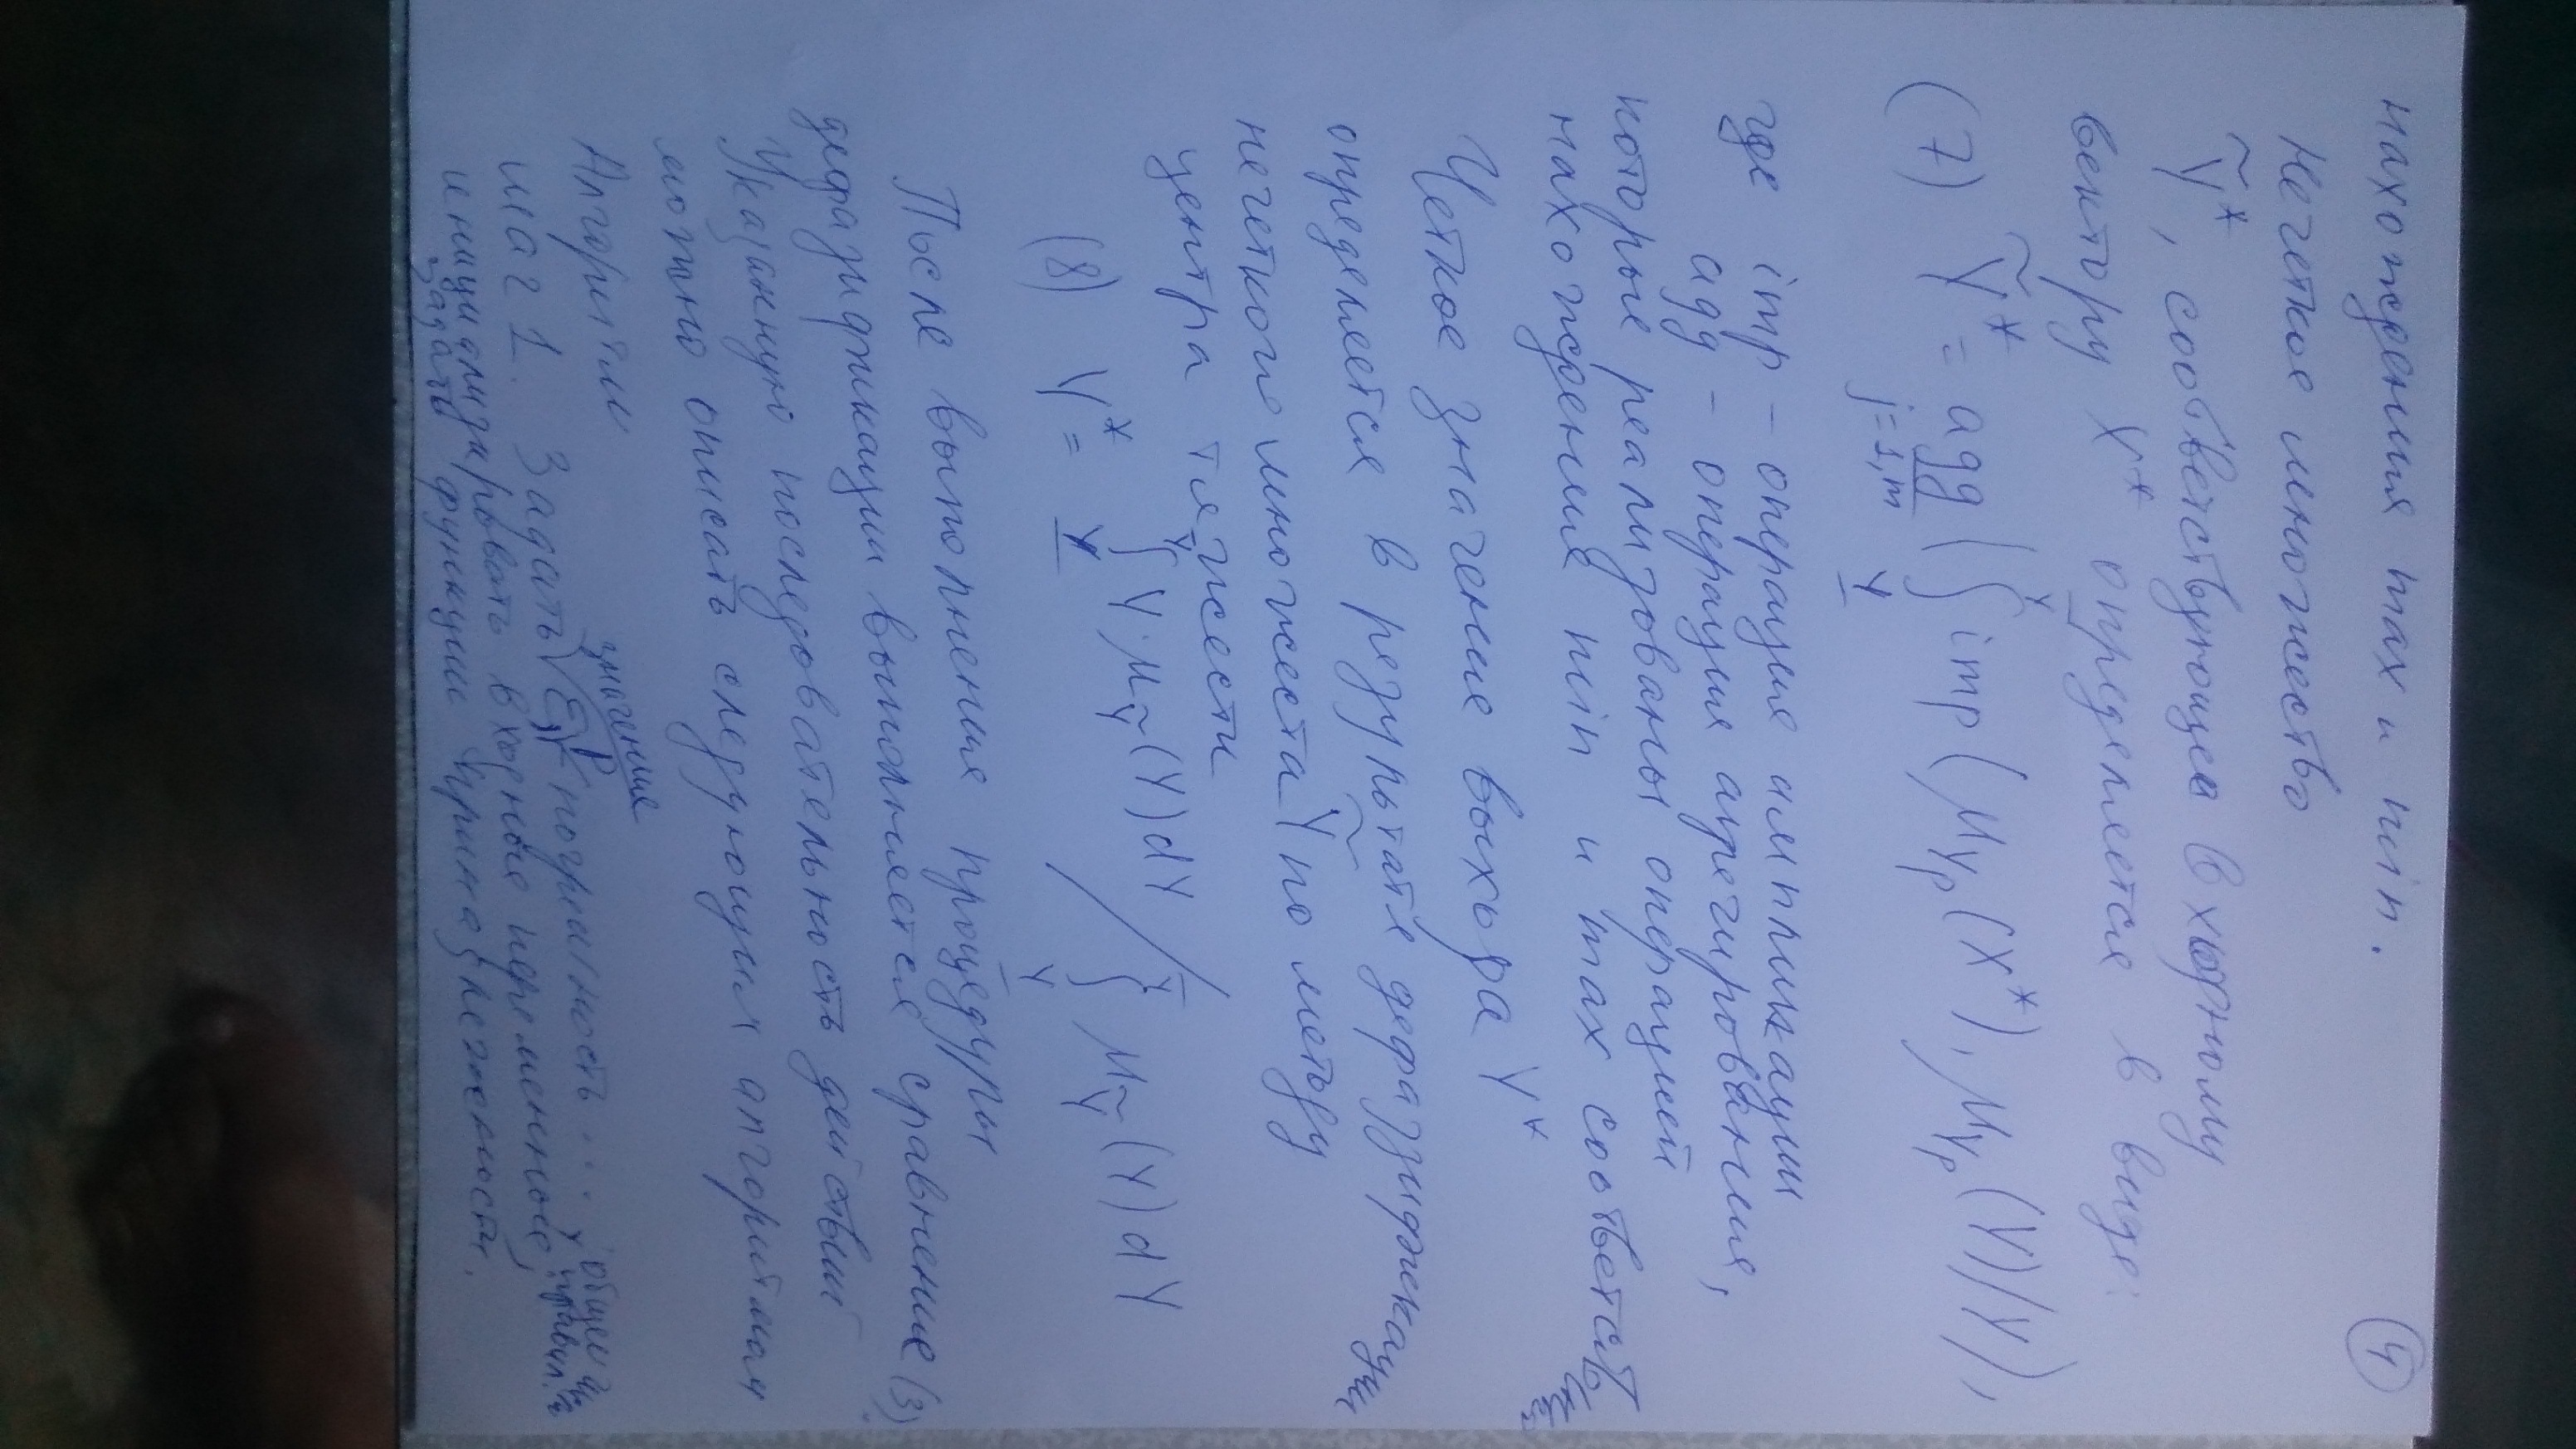 ④
нахождения max и min.
Нечеткое множество
Ỹ*, соответствующее входному
вектору X* определяется в виде:
(7) Ỹ* = agg (∫ imp (μ_Yp (X*), μ_Yp (Y))/Y),
j=1,m Y Y
где imp – операция импликации
agg – операция агрегирования,
которые реализованы операцией
нахождения min и max соответст
венно
Четкое значение выхода Y*
определяется в результате дефаззификации
нечеткого множества Ỹ по методу
центра тяжести
(8) Y* = ∫ Y·μ_Ỹ(Y)dY / ∫ μ_Ỹ(Y)dY
После выполнения процедуры
дефаззификации выполняется сравнение (3)
Указанную последовательность действий
можно описать следующим алгоритмом
Алгоритм
значение
шаг 1. Задать погрешность...
инициализировать входные переменные,
задать функции принадлежности.